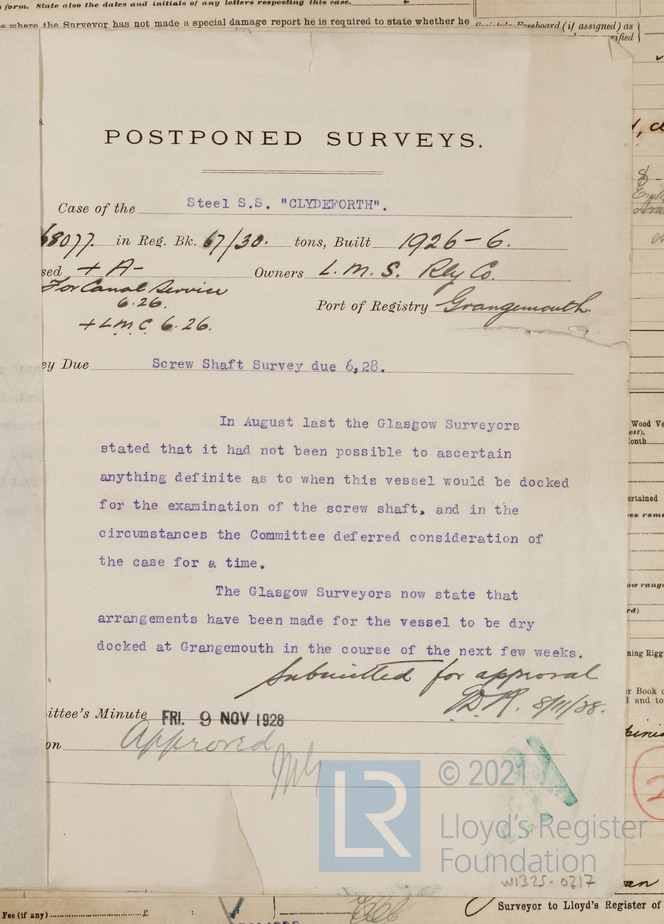 form. State also the dates and initials of any letters respecting this case.
where the Surveyor has not made a special damage report he is required to state whether he
Freeboard (if assigned) as
POSTPONED SURVEYS.
Case of the Steel S.S. "CLYDEFORTH".
68077 in Reg. Bk. 67/30. tons, Built 1926-6.
sed + A - Owners L.M.S. Rly Co.
For Canal Service
6.26.
Port of Registry Grangemouth
+LMC 6.26.
ey Due Screw Shaft Survey due 6,28.
In August last the Glasgow Surveyors
stated that it had not been possible to ascertain
anything definite as to when this vessel would be docked
for the examination of the screw shaft, and in the
circumstances the Committee deferred consideration of
the case for a time.
The Glasgow Surveyors now state that
arrangements have been made for the vessel to be dry
docked at Grangemouth in the course of the next few weeks.
Submitted for approval
8/11/28.
ittee's Minute FRI. 9 NOV 1928
on Approved
LR
© 2021
Lloyd's Register
Foundation
W1325-0217
Fee (if any) £
Surveyor to Lloyd's Register of